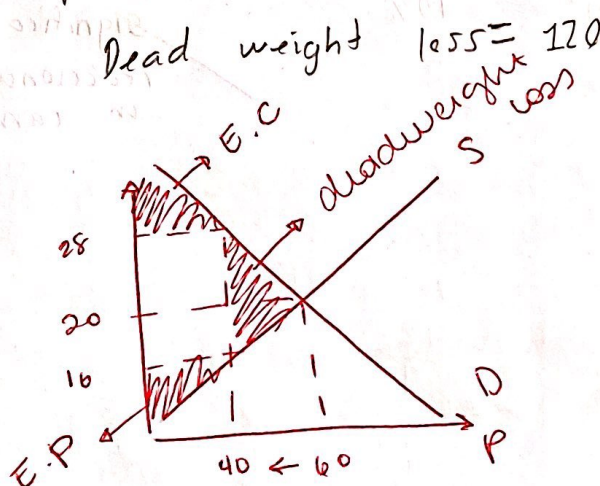 Dead weight loss = 120
E.C
deadweight loss
S
28
20
16
D
P
E.P
40 ← 60